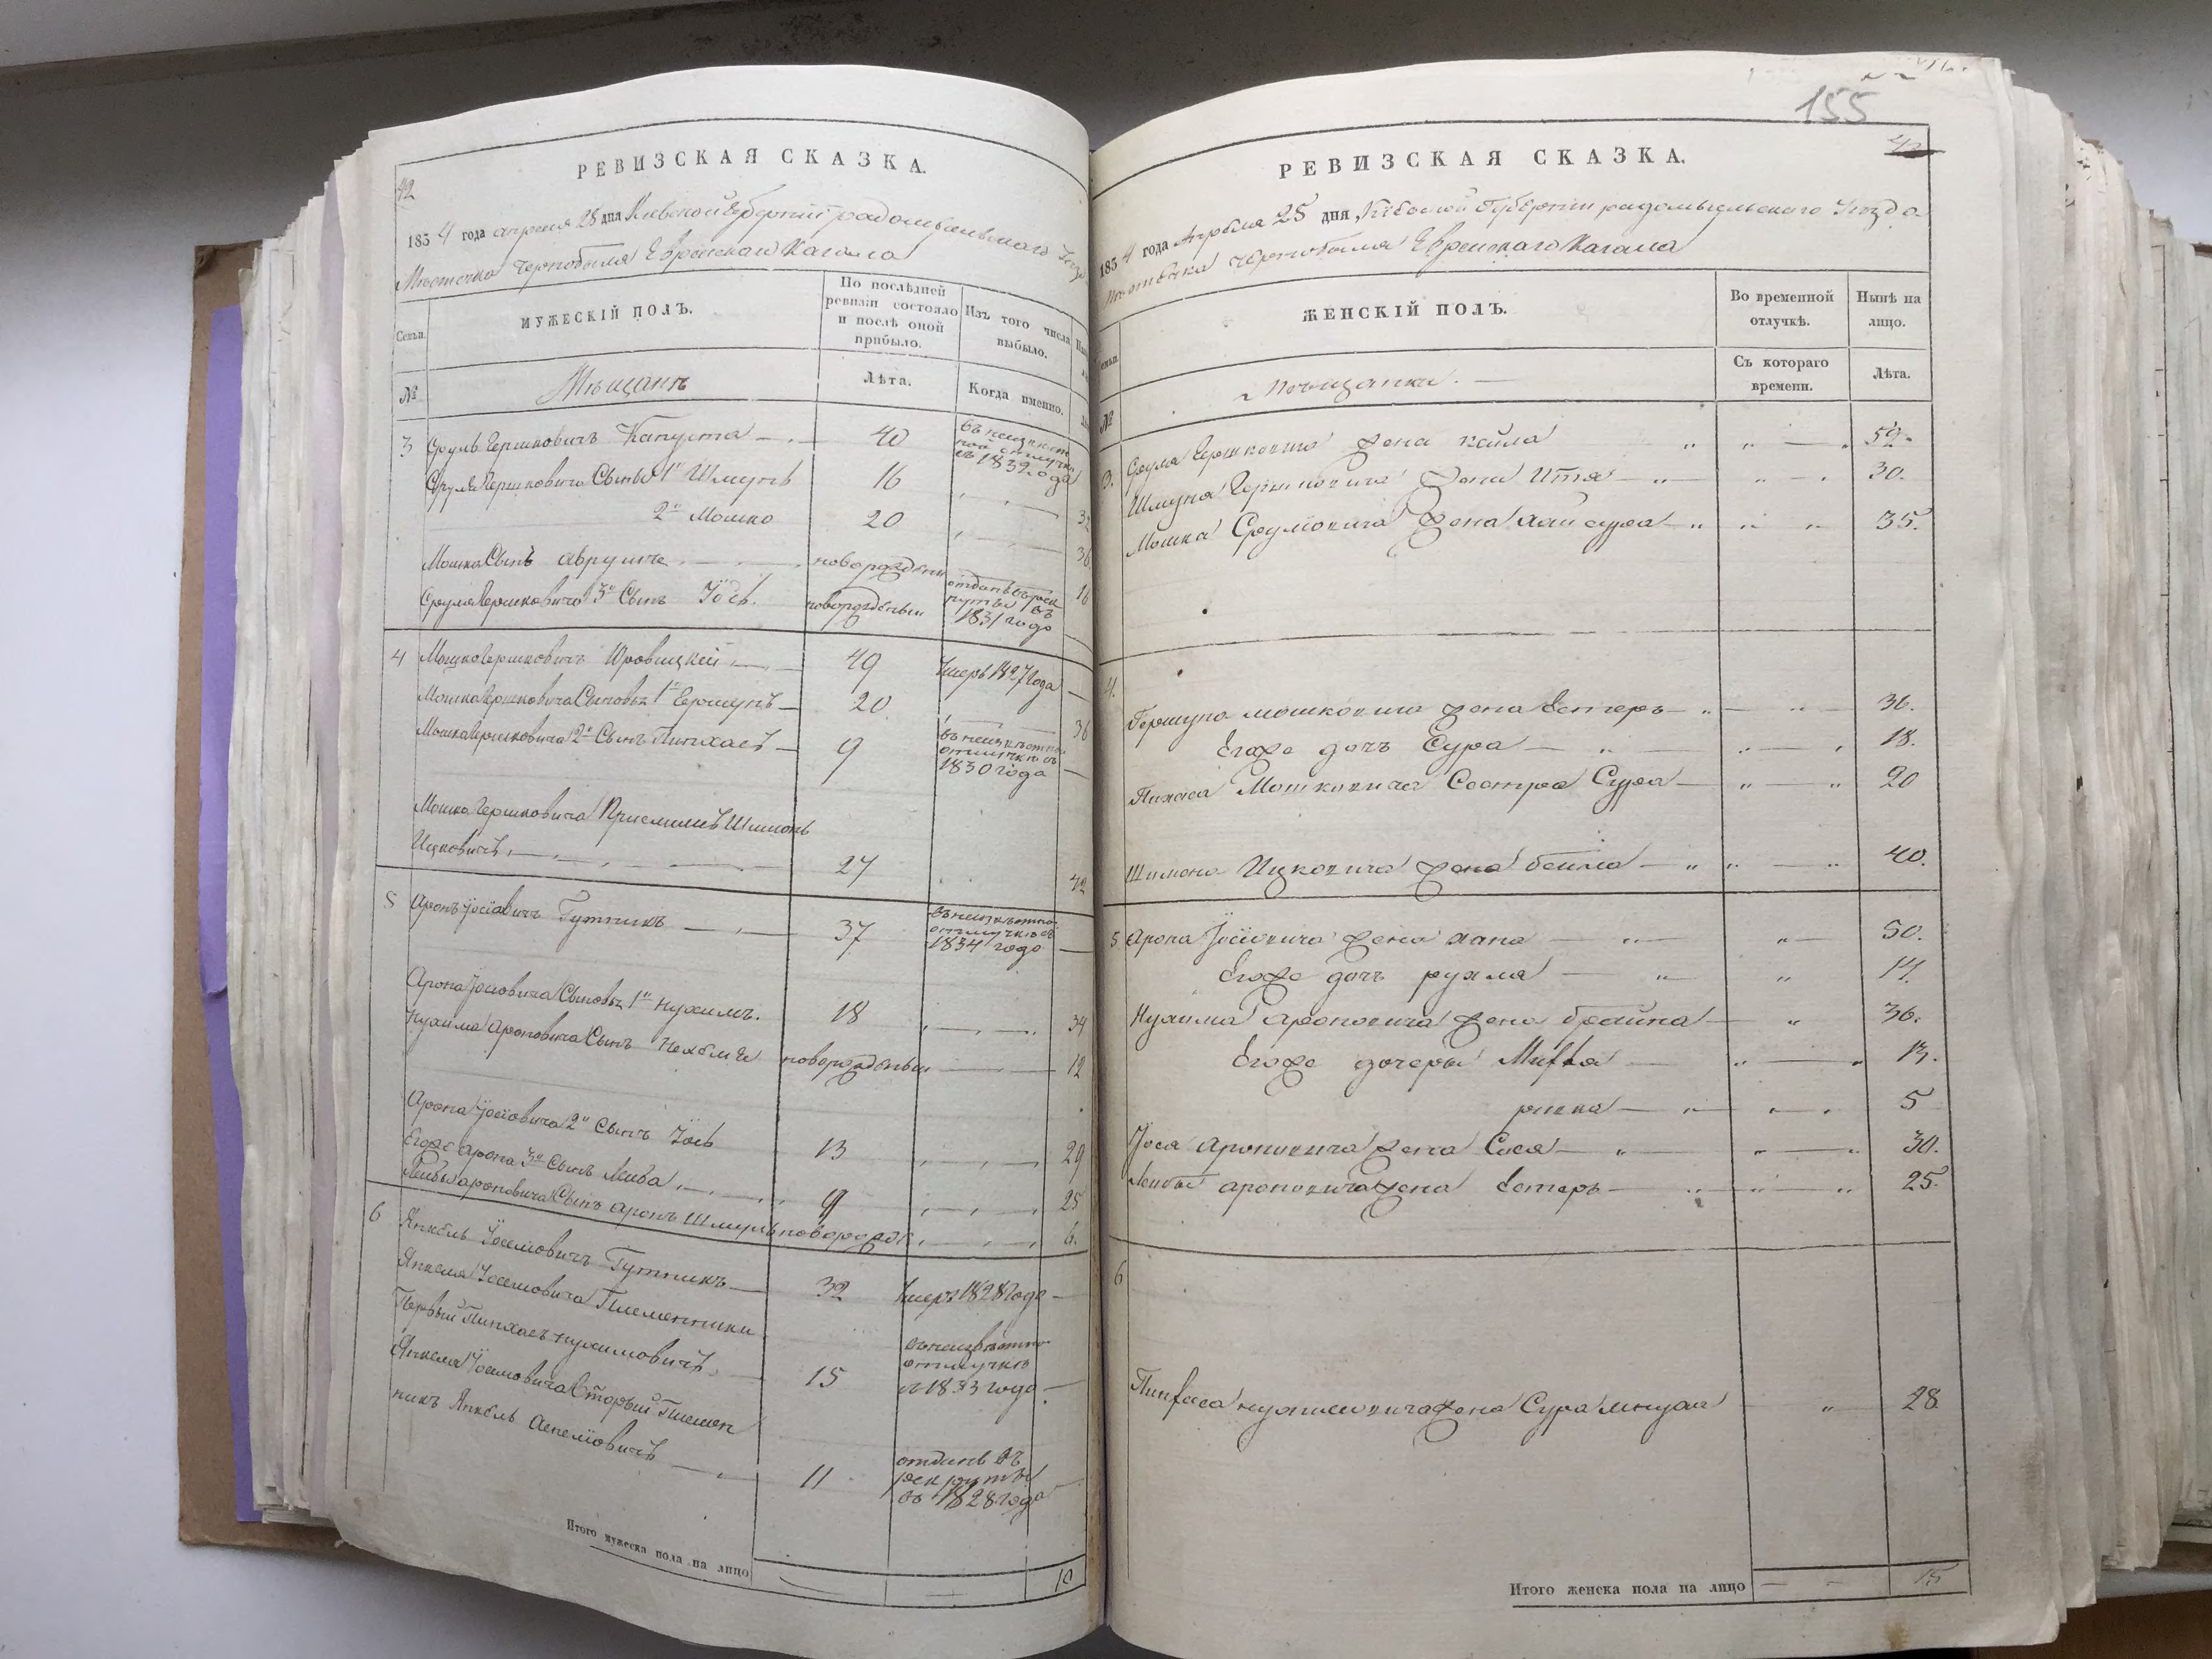 42
РЕВИЗСКАЯ СКАЗКА.
1834 года апреля 25 дня Киевской Губернии радомысльскаго
Местечка Чернобыля Еврейскаго Кагала
Семьи.
МУЖЕСКІЙ ПОЛЪ.
По послѣдней ревизіи состояло и послѣ оной прибыло.
Изъ того числа выбыло.
№
Мѣщанъ
Лѣта.
Когда именно.
3 Сруль Гершковичъ Капуста 40 въ неизвѣстной отлучке съ 1832 года
Сруля Гершковича Сыновья 1й Шмунь 16 32
2й Мошко 20 36
Мошка Сынъ аврумче новорожденный 16
Сруля Гершковича 3й Сынъ Іось новорожденный отданъ въ рекруты въ 1831 года
4 Мошко Гершковичъ Юровицкий 49 Умеръ 1827 года
Мошка Гершковича Сыновья 1й Гершунъ 20 36
Мошка Гершковича 2й Сынъ Пинхасъ 9 въ неизвѣстной отлучки съ 1830 года
Мошка Гершковича Приемышъ Шимонъ
Ицковичъ 27 42
5 Аронъ Іосіовичъ Гутникъ 37 въ неизвѣстной отлучке съ 1834 года
Арона Іосіовича Сыновья 1й Нухимъ 18 34
Нухима Ароновича Сынъ новорожденный 12
Арона Іосіовича 2й Сынъ Іось 13 29
Егоже Арона 3й Сынъ Лейба 9 25
Лейбы Ароновича Сынъ аронъ Шмуль новорожд 6.
6 Янкель Іосіовичъ Гутникъ 32 Умеръ 1828 года
Янкеля Іосіовича Племенники
Первый Пинхасъ Нухимовичъ 15 въ неизвѣстной отлучке съ 1833 года
Янкеля Іосіовича Вторый Племен
никъ Янкель 11 отданъ въ рекруты въ 1828 года
Итого мужеска пола на лицо 10
155
42
РЕВИЗСКАЯ СКАЗКА.
1834 года Апреля 25 дня Кіевской Губерніи радомысльскаго Уезда
Местечка Чернобыля Еврейскаго Кагала
Семьи.
ЖЕНСКІЙ ПОЛЪ.
Во временной отлучкѣ.
Нынѣ на лицо.
№
Мещанки.
Съ котораго времени.
Лѣта.
3. Сруля Гершковича жена кайла 52.
Шмуня Гершковича жена Итя 30.
Мошка Срулiовича жена хаи сура 35.
4. Гершуна мошковича жена Естеръ 36.
Егоже дочь Сура 18.
Пинхаса Мошковича Сестра Сура 20
Шимона Ицковича жена бейла 40.
5 Арона Іосiовича жена хана 50.
Егоже дочь рухля 14.
Нухима Ароновича жена брайна 36.
Егоже дочеры 13.
ривка 5
Іося Ароновича жена Сися 30.
Лейбы ароновича жена Естеръ 25.
6
Пинхаса нухимовича жена Сура 28.
Итого женска пола на лицо 15